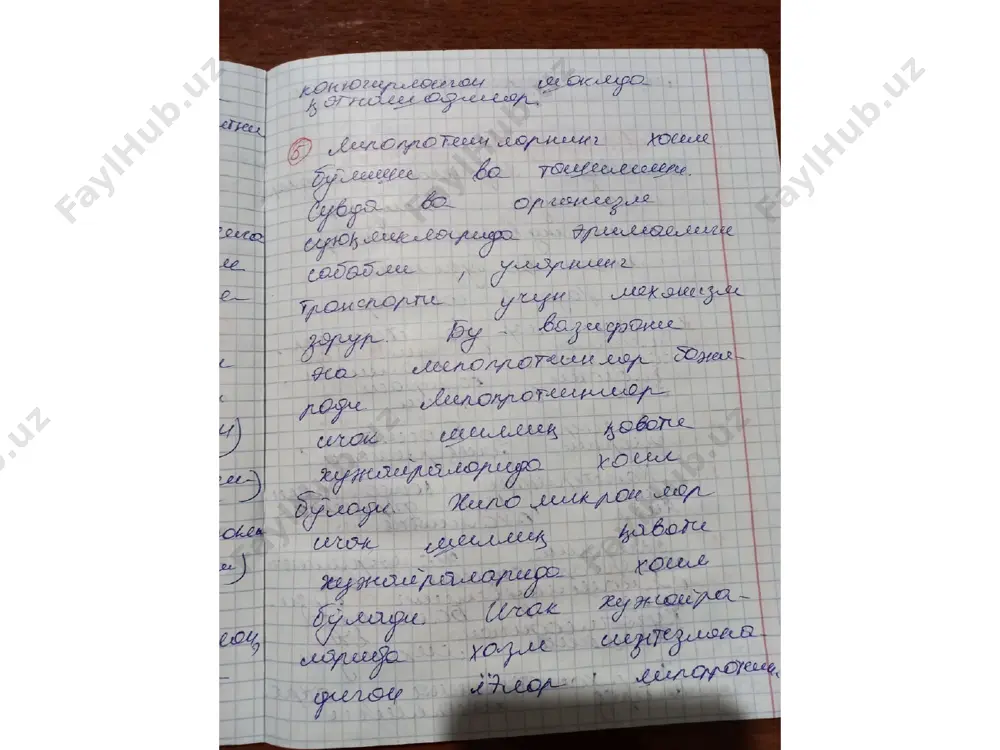 конюгирланган шаклда
қатнашадилар.
5) Липопротеинларнинг хосил
бўлиши ва ташилиши.
Сувда ва организм
суюқликларида эримаслиги
сабабли, уларнинг
транспорти учун механизм
зарур. Бу вазифани
эса липопротеинлар бажа-
ради Липопротеинлар
ичак шиллиқ қавати
хужайраларида хосил
бўлади Хиломикронлар
ичак шиллиқ қавати
хужайраларида хосил
бўлади. Ичак хужайра-
ларида хазм
диган лар липопротеин
FaylHub.uz
FaylHub.uz
FaylHub.uz
FaylHub.uz
FaylHub.uz
FaylHub.uz